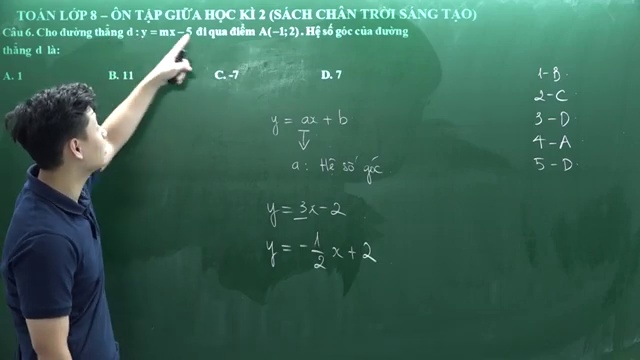 TOÁN LỚP 8 – ÔN TẬP GIỮA HỌC KÌ 2 (SÁCH CHÂN TRỜI SÁNG TẠO)
Câu 6. Cho đường thẳng d : y = mx – 5 đi qua điểm A(–1; 2). Hệ số góc của đường
thẳng d là:
A. 1 B. 11 C. -7 D. 7
1 - B
2 - C
3 - D
4 - A
5 - D
y = ax + b
a : Hệ số góc
y = 3x - 2
y = - 1/2 x + 2